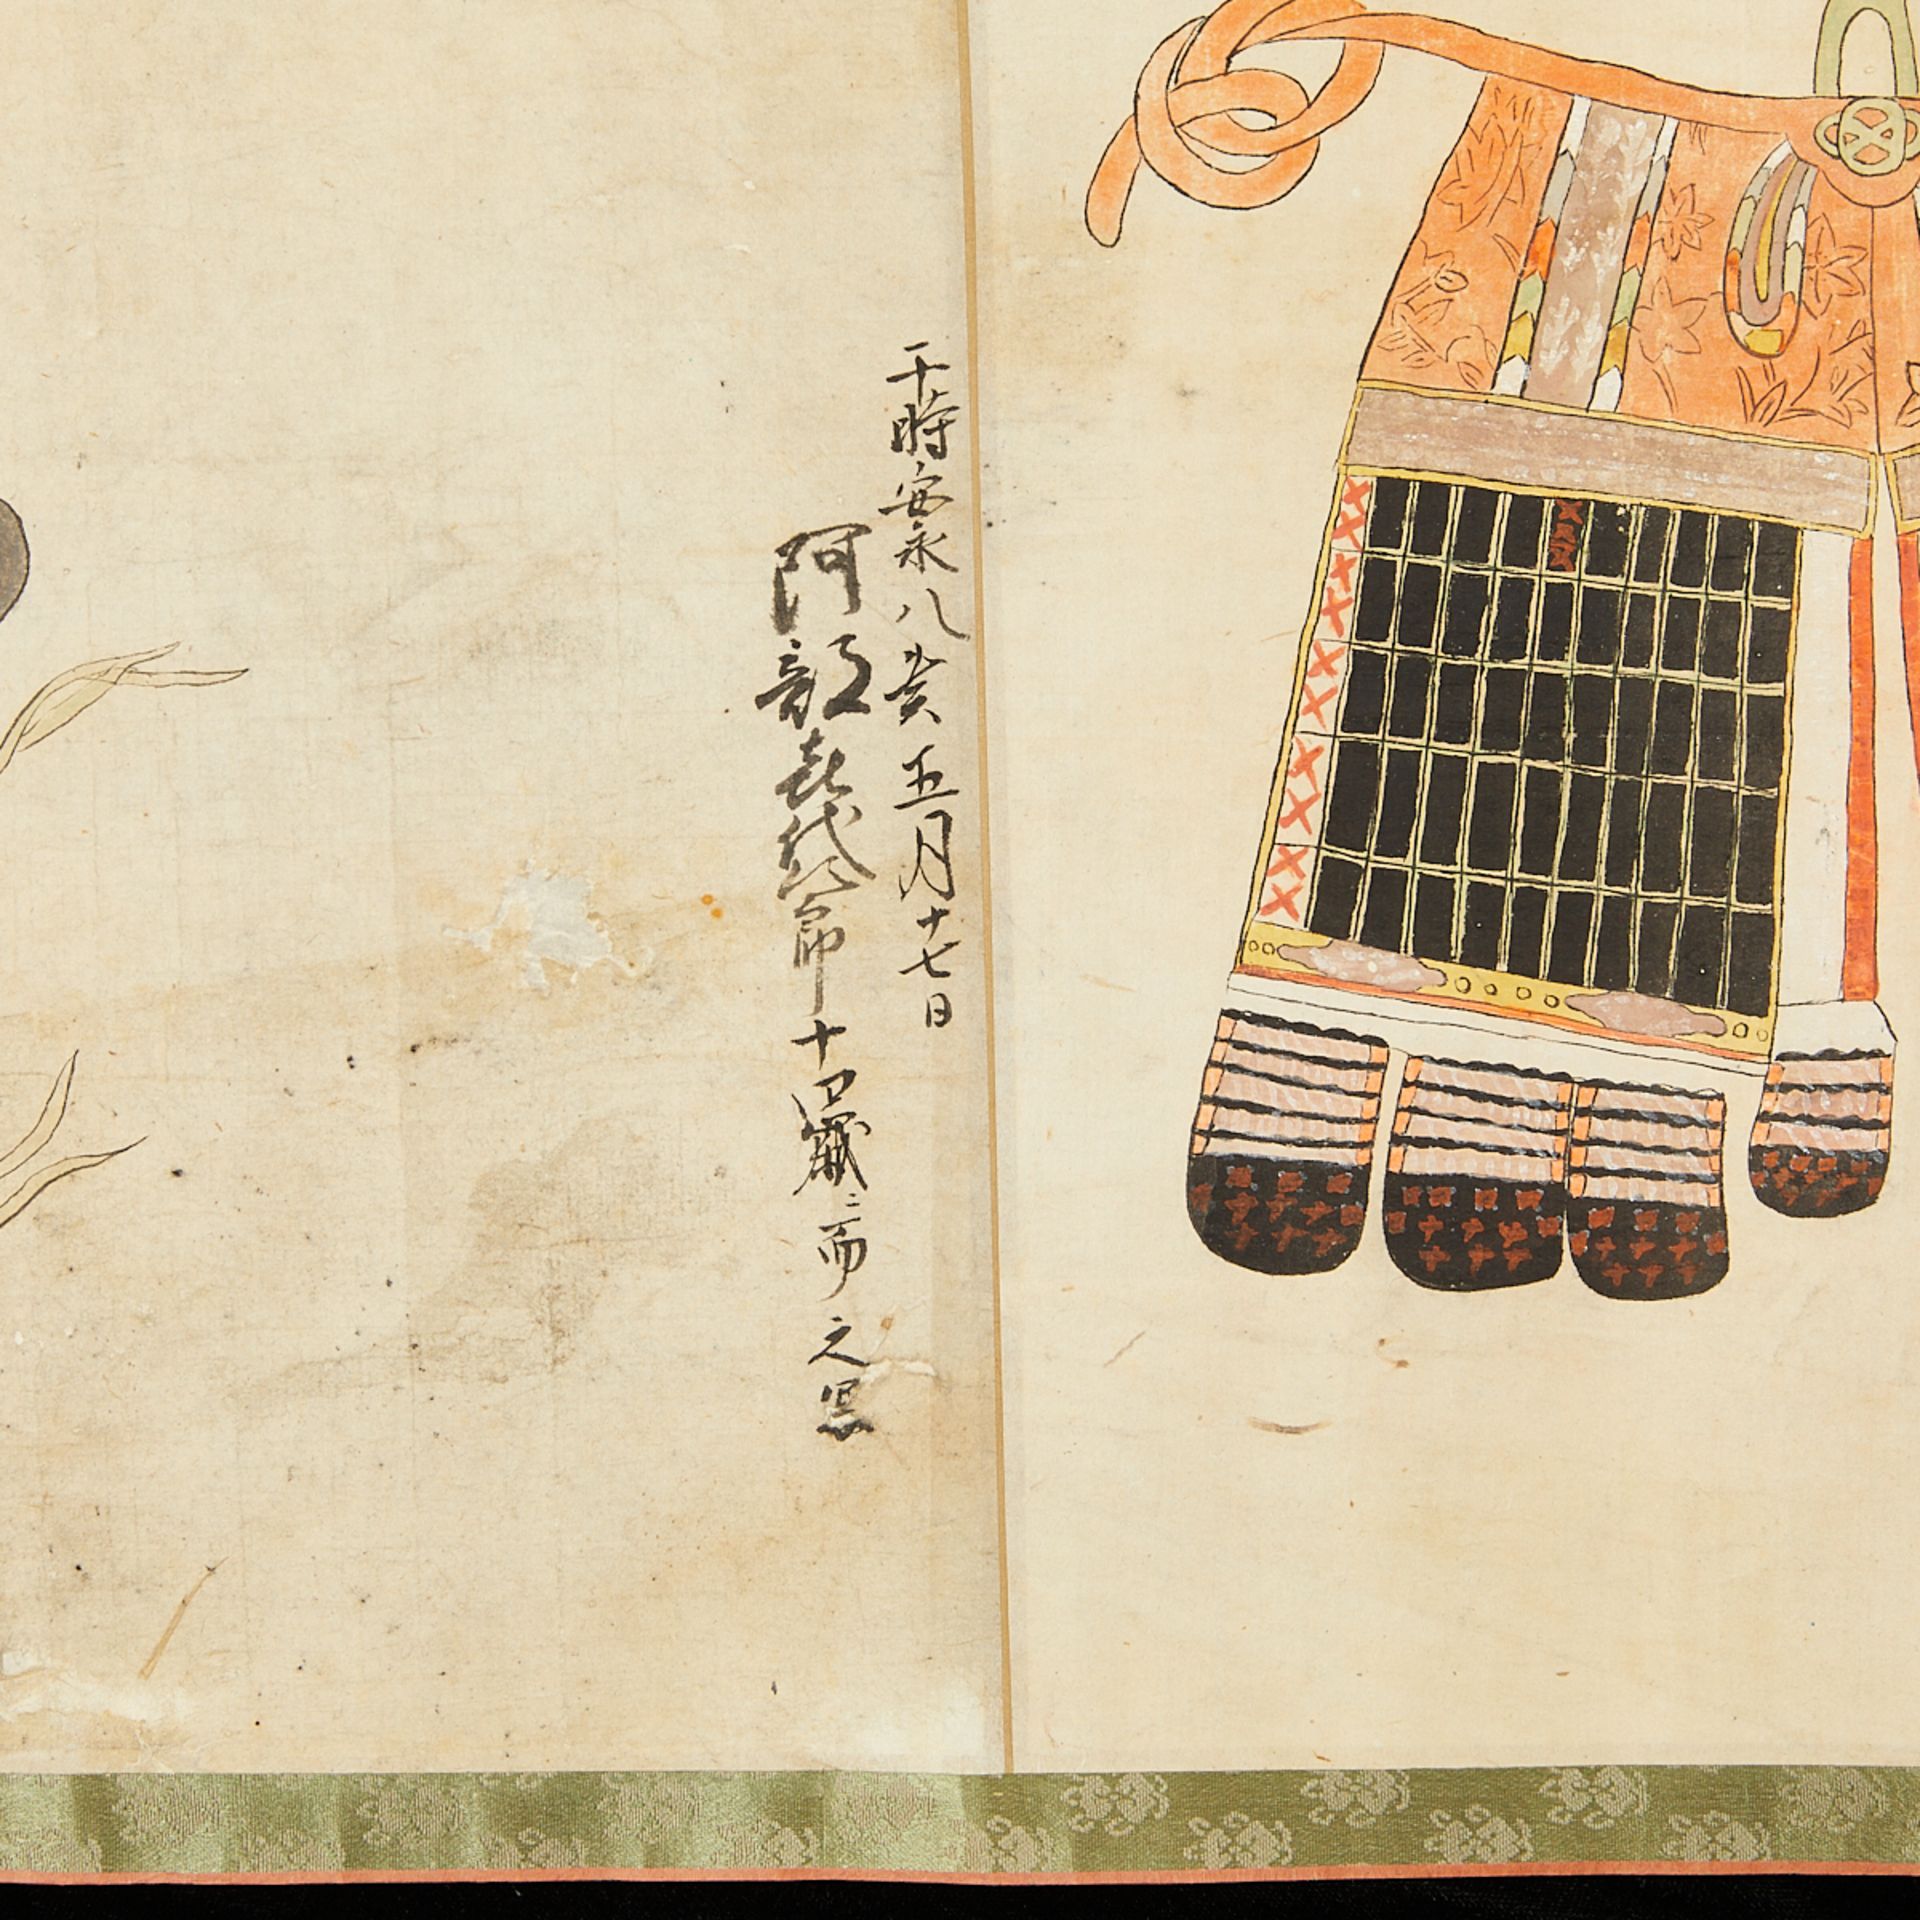 于時安永八亥五月十七日
阿部喜代次郎十四歳ニ而之写